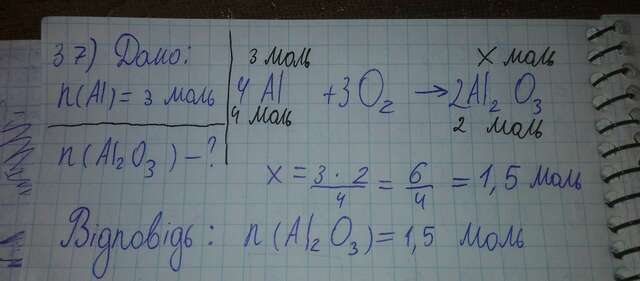 37) Дано:
n(Al) = 3 моль
n(Al₂O₃) - ?
3 моль x моль
4Al + 3O₂ → 2Al₂O₃
4 моль 2 моль
x = 3 · 2 / 4 = 6 / 4 = 1,5 моль
Відповідь: n(Al₂O₃) = 1,5 моль